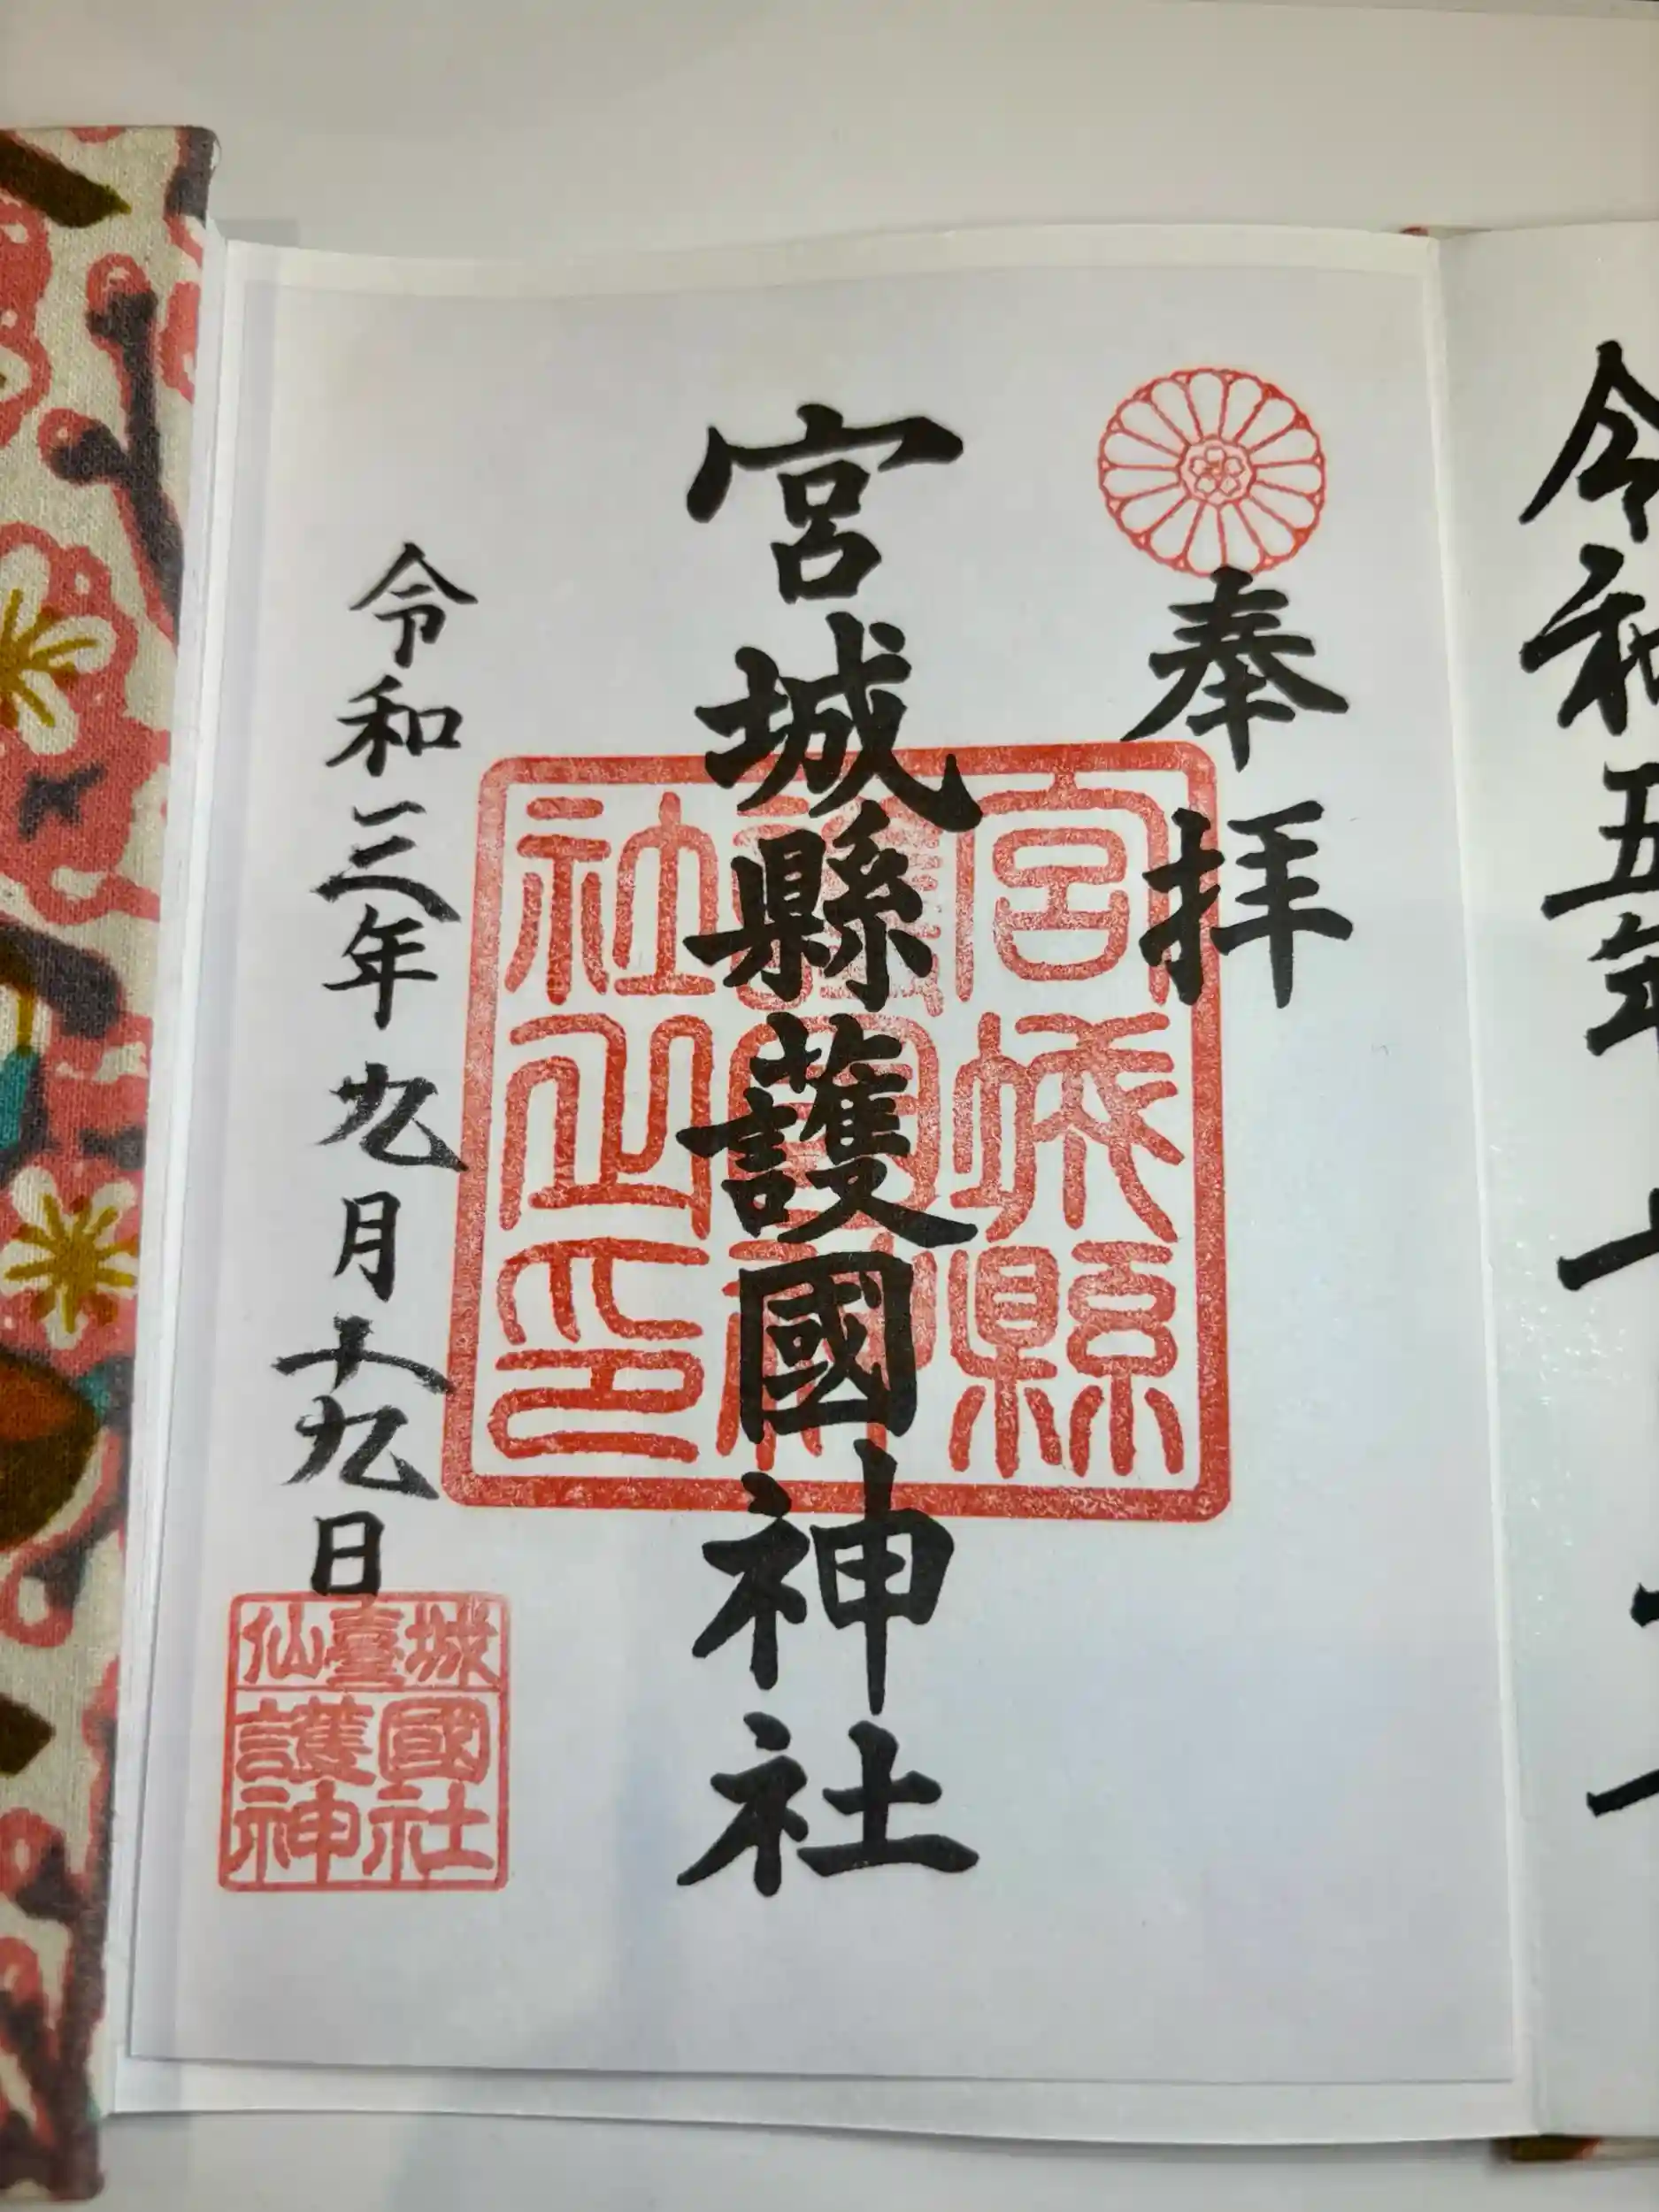 奉拝
宮城縣護國神社
宮城縣
護國神
社之印
令和三年九月十九日
仙臺城
護國
神社
令和五年